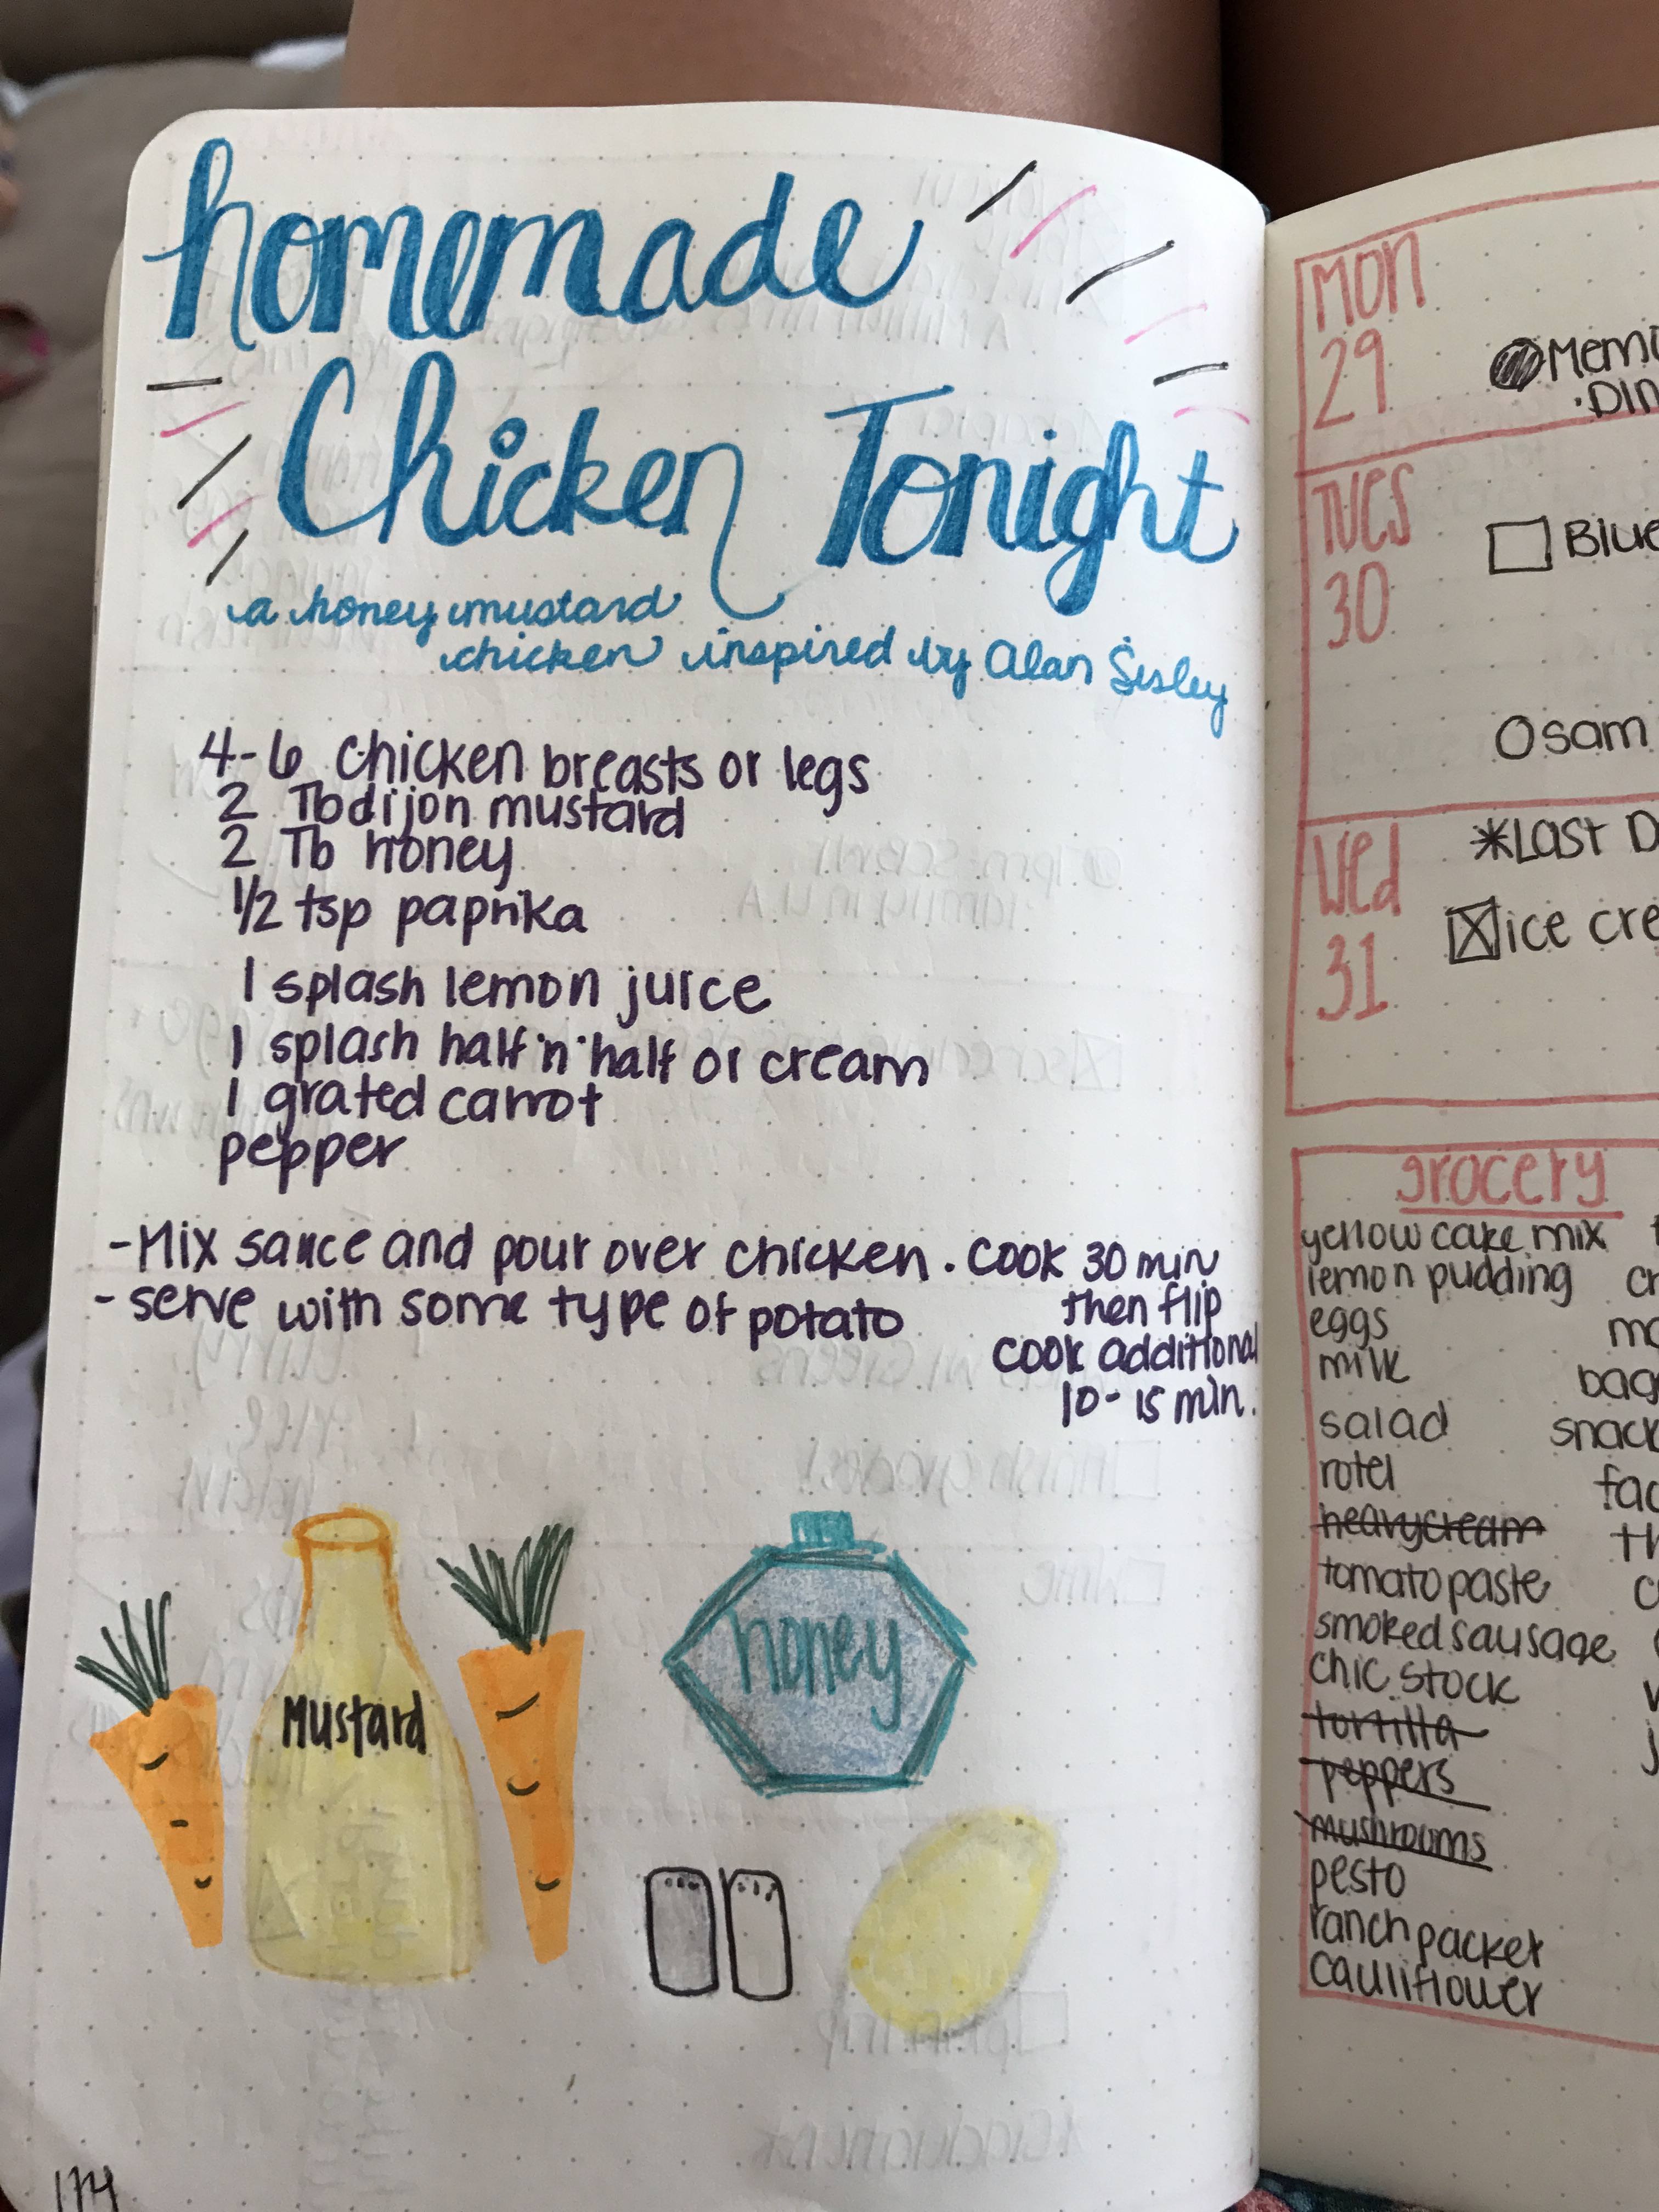 homemade
Chicken Tonight
a honey mustard
chicken inspired by Alan Sisley
4-6 chicken breasts or legs
2 Tb dijon mustard
2 Tb honey
1/2 tsp paprika
1 splash lemon juice
1 splash half 'n' half or cream
1 grated carrot
pepper
-Mix sauce and pour over chicken. Cook 30 min
then flip
cook additional
10-15 min.
- serve with some type of potato
Mustard
honey
174
Mon
29
Tues
30
Blue
Wed
31
*Last D
ice cre
grocery
yellow cake mix
lemon pudding
eggs
milk
salad
rotel
heavy cream
tomato paste
smoked sausage
chic stock
tortilla
peppers
mushrooms
pesto
ranch packet
cauliflower